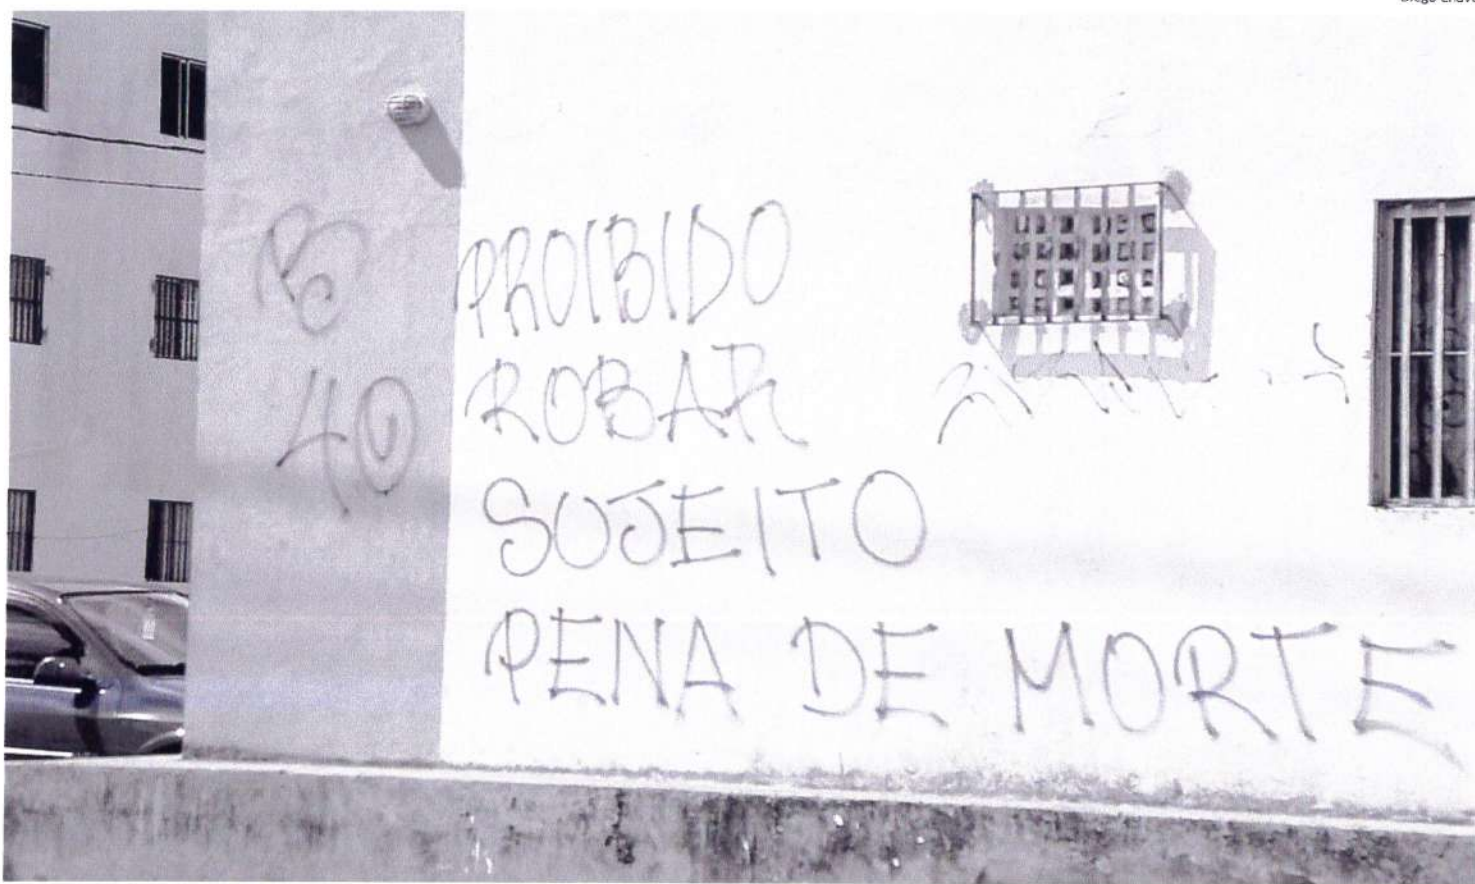 B
40
PROIBIDO
ROBAR
SUJEITO
PENA DE MORTE